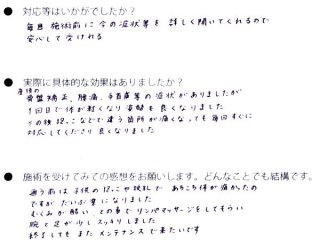 ● 対応等はいかがでしたか？
毎回施術前に今の症状等を詳しく聞いてくれるので
安心して受けれる
● 実際に具体的な効果はありましたか？
産後の
骨盤矯正、腰痛、手首痛等の症状がありましたが
1回目で体が軽くなり姿勢も良くなりました
その後抱っこなどで違う箇所が痛くなっても毎回すぐに
対応してくださり良くなりました
● 施術を受けてみての感想をお願いします。どんなことでも結構です。
通う前は子供の抱っこや授乳であちこち体が痛かったの
ですがだいぶ楽になりました
むくみが酷い、との事でリンパマッサージをしてもらい
腕と足が少しスッキリしました
終了してもまたメンテナンスで来たいです